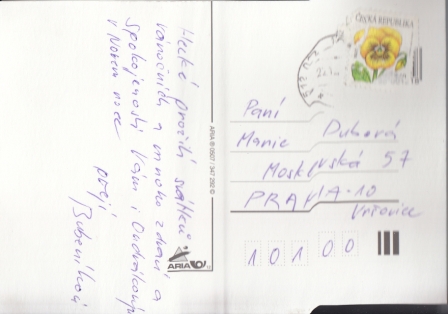 Hezké prožití svátků
vánočních a mnoho zdraví a
spokojenosti Vám i Ondráškovým
v Novém roce
přejí
Bubeníkovi
ARIA B 0507 / 347 292 ©
ARIA
ČESKÁ REPUBLIKA
Paní
Marie Dubová
Moskevská 57
PRAHA-10
Vršovice
101 00